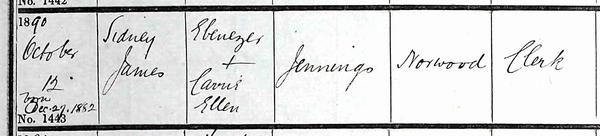 No. 1442
1890 October 12 born Dec. 27. 1882
Sidney James
Ebenezer + Carrie Ellen
Jennings
Norwood
Clerk
No. 1443